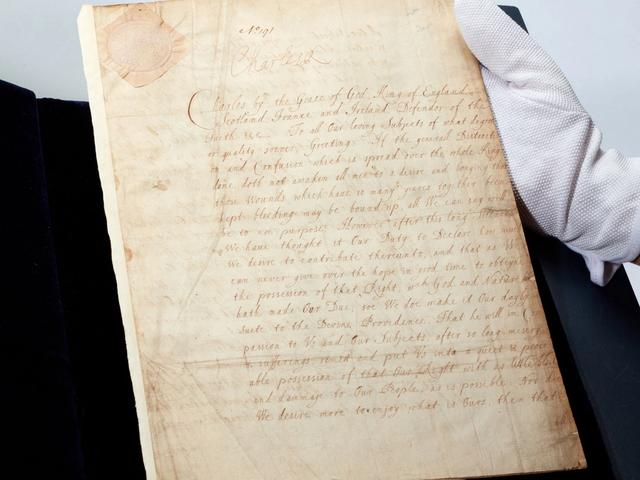 Charles R
Charles by the Grace of God King of England
Scotland France and Ireland Defendor of the
faith &c. To all Our loving Subjects of what degree
or quality soever, Greeting. If the generall Distracti
on and Confusion which is spread over the whole King
dome doth not awaken all men to a desire and longing
those Wounds which have so many yeares together been
kept bleeding may be bound up, all We can say will
be to no purpose; However after this long
We have thought it Our Duty to Declare how much
We desire to contribute thereunto, and that as We
can never give over the hope in good time to obteyn
the possession of that Right, wch God and Nature
hath made Our Due, soe We doe make it Our dayly
suite to the Devine Providence, That he will in
passion to Us and Our Subjects, after so long misery
& sufferings remitt and put Us into a quiet & peace
able possession of that Our Right with as little
and damage to Our People, as is possible. Nor
We desire more to enjoy what is Ours, then that